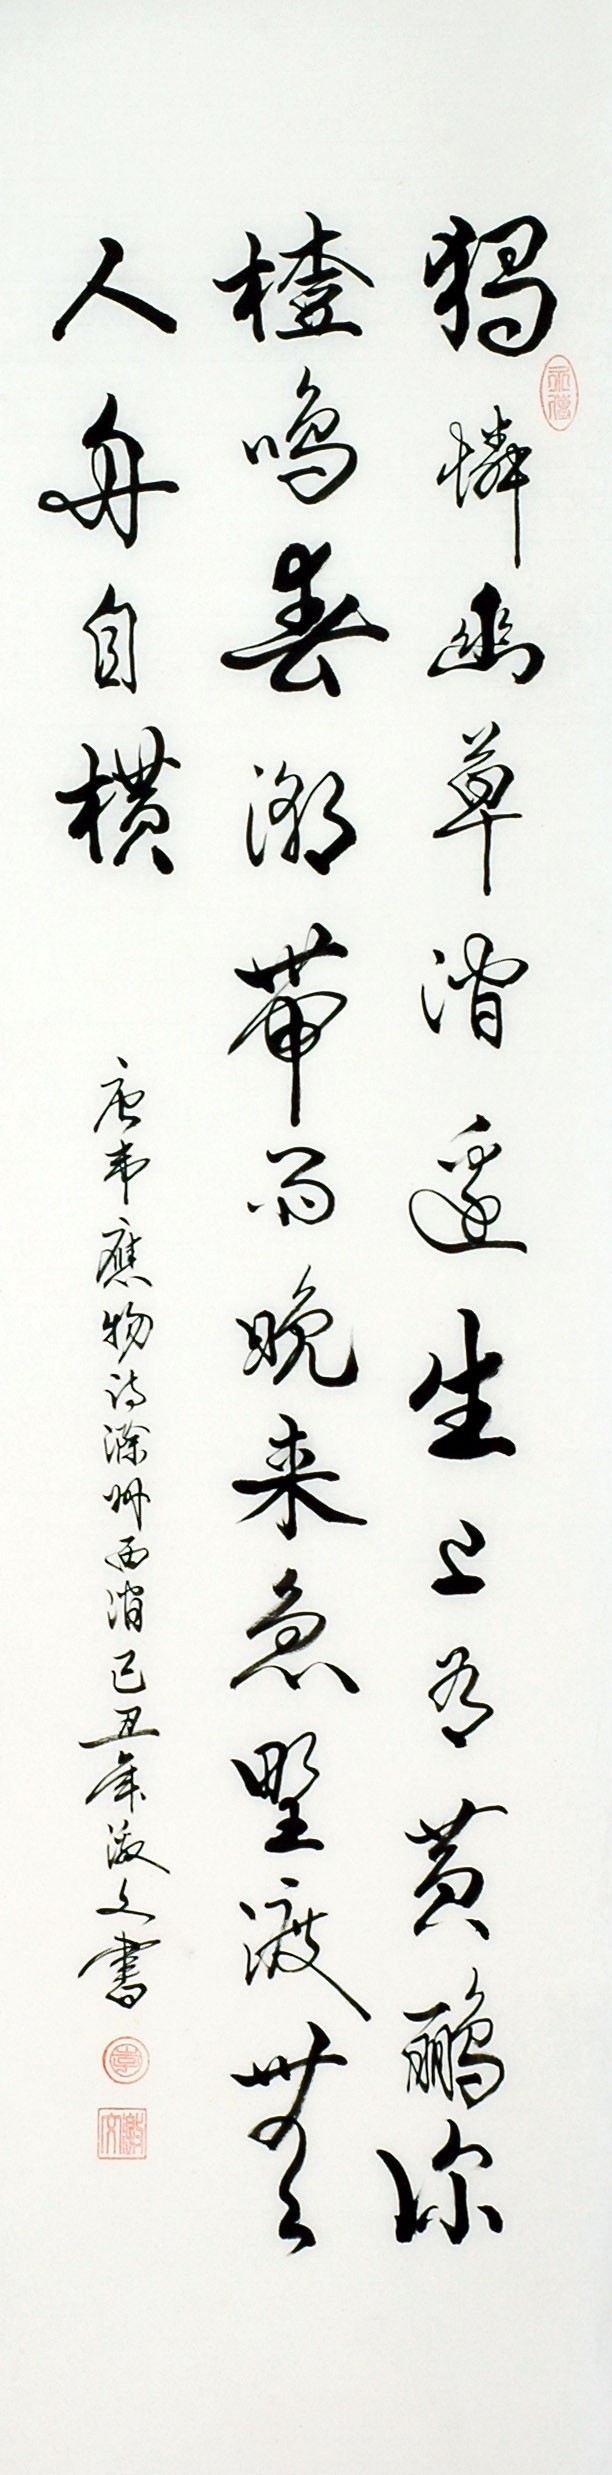 獨憐幽草澗邊生上有黄鸝深
樹鳴春潮帶雨晚来急野渡無
人舟自橫
唐韋應物詩滁州西澗己丑年文書